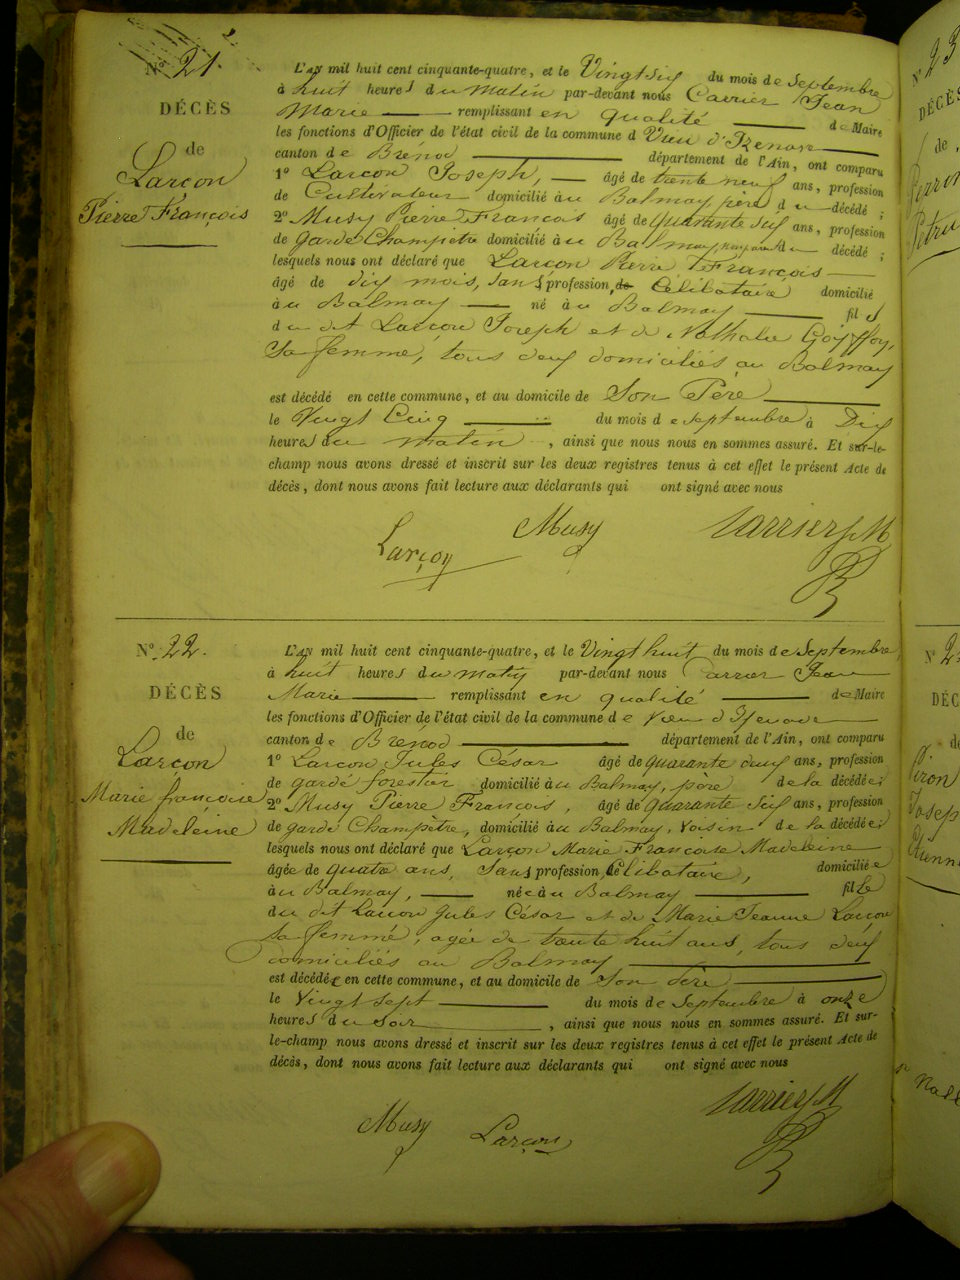 N° 21.
DÉCÈS
de
Larçon
Pierre François
L'AN mil huit cent cinquante-quatre, et le Vingt six du mois de Septembre
à huit heures du matin par-devant nous Carrier Jean
Marie remplissant en qualité de Maire
les fonctions d'Officier de l'état civil de la commune d Vieu d'Izenave
canton de Brénod département de l'Ain, ont comparu
1° Larçon Joseph, âgé de trente neuf ans, profession
de Cultivateur domicilié à u Balmay père d u décédé ;
2° Musy Pierre François âgé de quarante six ans, profession
de garde Champêtre domicilié à u Balmay du décédé ;
lesquels nous ont déclaré que Larçon Pierre François
âgé de dix mois, sans profession, de Célibataire domicilié
à u Balmay né à u Balmay fil s
du dit Larçon Joseph et de Nathalie Goÿffoy,
Sa femme, tous deux domiciliés au Balmay
est décédé en cette commune, et au domicile de Son Père
le Vingt Cinq du mois d e septembre à Dix
heures du matin , ainsi que nous nous en sommes assuré. Et sur-le-
champ nous avons dressé et inscrit sur les deux registres tenus à cet effet le présent Acte de
décès, dont nous avons fait lecture aux déclarants qui ont signé avec nous
Larçon Musy Carrier J M
N° 22.
DÉCÈS
de
Larçon
Marie françoise
Madeleine
L'AN mil huit cent cinquante-quatre, et le Vingt huit du mois de Septembre,
à huit heures du matin par-devant nous Carrier Jean
Marie remplissant en qualité de Maire
les fonctions d'Officier de l'état civil de la commune d e Vieu d'Izenave
canton de Brénod département de l'Ain, ont comparu
1° Larçon Jules César âgé de quarante deux ans, profession
de garde forestier domicilié à u Balmay, père de la décédée ;
2° Musy Pierre François, âgé de quarante Six ans, profession
de garde Champêtre, domicilié à u Balmay, Voisin de la décédée ;
lesquels nous ont déclaré que Larçon Marie Françoise Madeleine
âgée de quatre ans, Sans profession, Célibataire, domiciliée
à u Balmay, née à u Balmay fille
du dit Larçon Jules César et de Marie Jeanne Larçon
sa femme, agée de trente huit ans, tous deux
domiciliés au Balmay
est décédée en cette commune, et au domicile de Son père
le Vingt sept du mois d e Septembre à onze
heures du soir , ainsi que nous nous en sommes assuré. Et sur-
le-champ nous avons dressé et inscrit sur les deux registres tenus à cet effet le présent Acte de
décès, dont nous avons fait lecture aux déclarants qui ont signé avec nous
Musy Larçon Carrier J M
N° 23
DÉCÈS
de
N° 2
DÉC
de